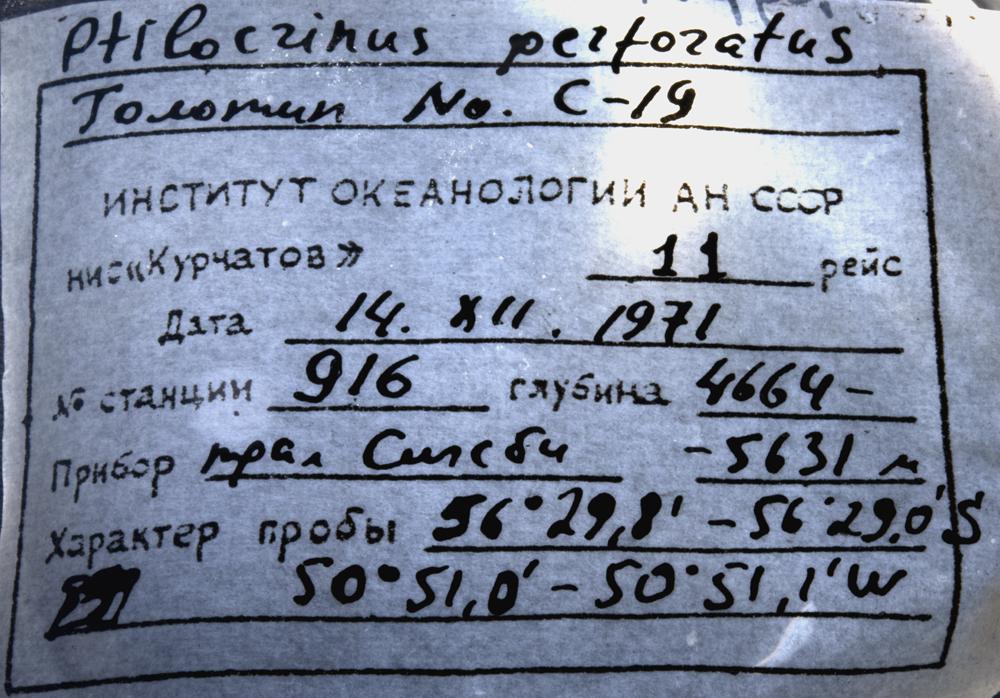 Ptilocrinus perforatus
Голотип No. C-19
ИНСТИТУТ ОКЕАНОЛОГИИ АН СССР
нис «Курчатов» 11 рейс
Дата 14. XII. 1971
№ станции 916 глубина 4664-
Прибор трал Сигсби -5631 м
Характер пробы 56°29,8' - 56°29,0' S
50°51,0' - 50°51,1' W